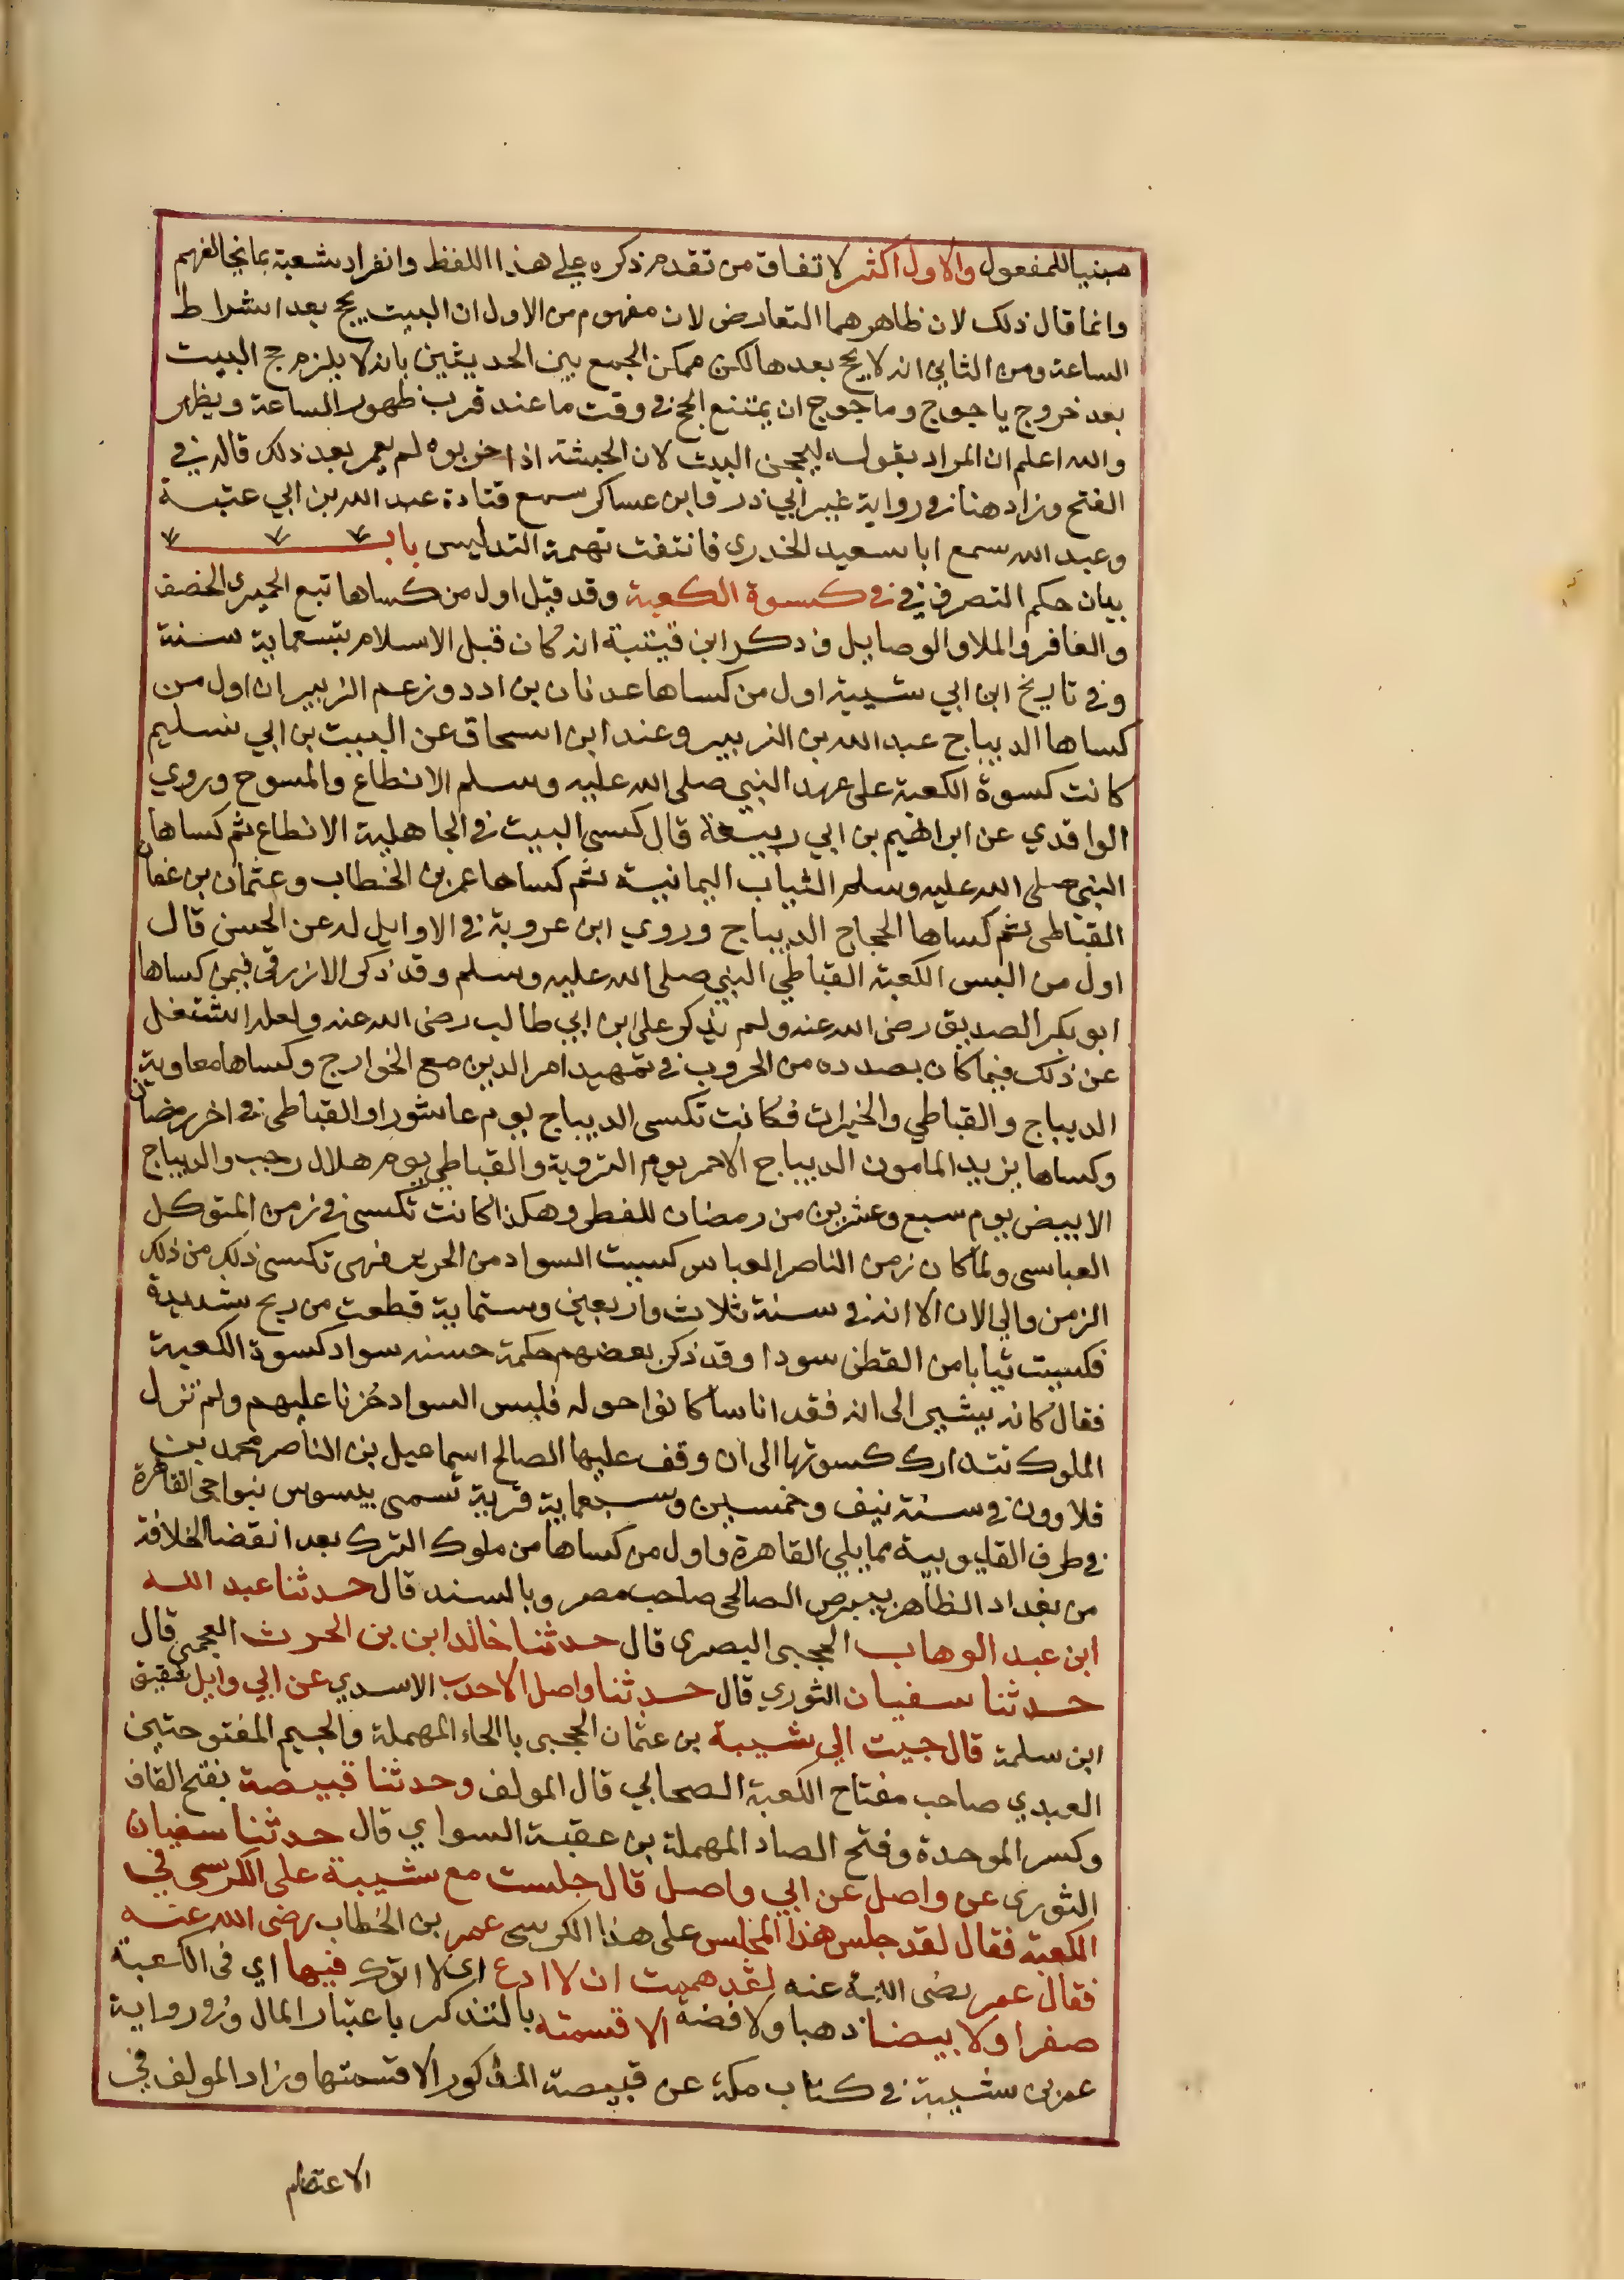 مبنيا للمفعول والاول اكثر لاتفاق من تقدم ذكره على هذا اللفظ وانفراد شعبة بما يخالفهم
وانما قال ذلك لان ظاهرهما التعارض لان مفهوم من الاول ان البيت يحج بعد اشراط
الساعة ومن الثاني انه لا يحج بعدها لكن ممكن الجمع بين الحديثين بانه لا يلزم حج البيت
بعد خروج ياجوج وماجوج ان يمتنع الحج في وقت ما عند قرب ظهور الساعة ويظهر
والله اعلم ان المراد بقوله ليحجن البيت لان الحبشة اذا خربوه لم يعمر بعد ذلك قاله في
الفتح وزاد هنا في رواية غير ابي ذر وابن عساكر سمع قتادة عبد الله بن ابي عتبة
وعبد الله سمع ابا سعيد الخدري فانتفت تهمة التدليس باب
بيان حكم التصرف في في كسوة الكعبة وقد قيل اول من كساها تبع الحميري الخصف
والغافر والملا والوصايل وذكر ابن قيتبة انه كان قبل الاسلام بتسعماية سنة
وفي تاريخ ابن ابي شيبة اول من كساها عدنان بن ادد وزعم الزبير ان اول من
كساها الديباج عبد الله بن الزبير وعند ابن اسحاق عن الليث بن ابي سليم
كانت كسوة الكعبة على عهد النبي صلى الله عليه وسلم الانطاع والمسوح وروي
الواقدي عن ابراهيم بن ابي ربيعة قال كسى البيت في الجاهلية الانطاع ثم كساها
النبي صلى الله عليه وسلم الثياب اليمانية ثم كساها عمر بن الخطاب وعثمان بن عفان
القباطي ثم كساها الحجاج الديباج وروي ابن عروبة في الاوايل له عن الحسن قال
اول من البس الكعبة القباطي النبي صلى الله عليه وسلم وقد ذكر الازرقي فيمن كساها
ابو بكر الصديق رضى الله عنه ولم يذكر على ابن ابي طالب رضى الله عنه ولعله اشتغل
عن ذلك فيما كان بصدده من الحروب في تمهيد امر الدين مع الخوارج وكساها معاوية
الديباج والقباطي والخيرات فكانت تكسى الديباج يوم عاشورا والقباطي في اخر رمضان
وكساها يزيد المامون الديباج الاحمر يوم التروية والقباطي يوم هلال رجب والديباج
الابيض يوم سبع وعشرين من رمضان للفطر وهكذا كانت تكسى في زمن المتوكل
العباسى ولما كان زمن الناصر العباس كسيت السواد من الحرير فهى تكسى ذلك من ذلك
الزمن والي الان الا انه في سنة ثلاث واربعين وستماية قطعت من ريح شديدة
فكسيت ثيابا من القطن سودا وقد ذكر بعضهم حكمة حسنه سواد كسوة الكعبة
فقال كانه يشير الى انه فقد اناسا كانوا حوله فلبس السواد حُزنا عليهم ولم تزل
الملوك تتدارك كسوتها الى ان وقف عليها الصالح اسماعيل بن الناصر محمد بن
قلاوون في سنة نيف وخمسين وسبعماية قرية تسمى بيسوس بنواحى القاهرة
في طرف القليوبية مما يلي القاهرة واول من كساها من ملوك الترك بعد انقضا الخلافة
من بغداد الظاهر بيبرص الصالحى صاحب مصر وبالسند قال حدثنا عبد الله
ابن عبد الوهاب الحجبى البصرى قال حدثنا خالد ابن بن الحرث العجمى قال
حدثنا سفيان الثوري قال حدثنا واصل الاحدب الاسدي عن ابي وايل شقيق
ابن سلمة قال جيت الي شيبة بن عثمان الحجبى بالحاء المهملة والجيم المفتوحتين
العبدي صاحب مفتاح الكعبة الصحابي قال المولف وحدثنا قبيصة بفتح القاف
وكسر الموحدة وفتح الصاد المهملة بن عقبة السواي قال حدثنا سفيان
الثورى عن واصل عن ابي واصل قال جلست مع شيبة على الكرسى في
الكعبة فقال لقد جلس هذا المجلس على هذا الكرسى عمر بن الخطاب رضى الله عنه
فقال عمر رضى الله عنه لقد هممت ان لا ادع اى لا اترك فيها اي فى الكعبة
صفرا ولا بيضا ذهبا ولا فضة الا قسمته بالتذكر باعتبار المال وفي رواية
عمر بن شيبة في كتاب مكة عن قبيصة المذكور الا قسمتها وزاد المولف في
الاعتصام